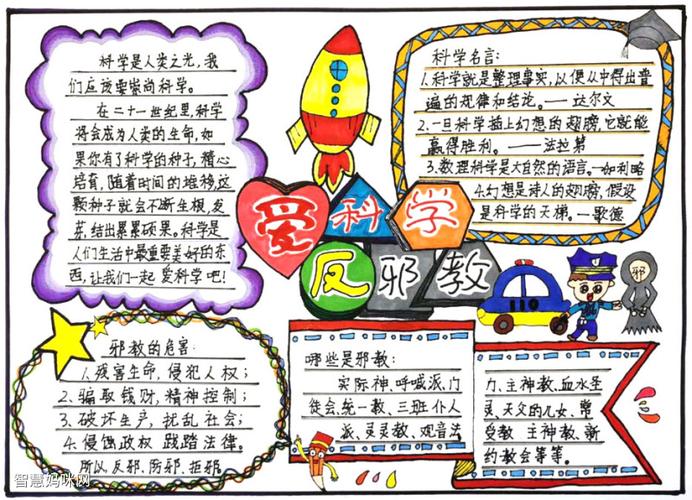 科学是人类之光，我
们应该要崇尚科学。
在二十一世纪里，科学
将会成为人类的生命，如
果你有了科学的种子，精心
培育，随着时间的堆移，这
颗种子就会不断生根，发
芽，结出累累硕果。科学是
人们生活中最重要美好的东
西，让我们一起 爱科学吧！
科学名言：
1.科学就是整理事实，以便从中得出普
遍的规律和结论。——达尔文
2.一旦科学插上幻想的翅膀，它就能
赢得胜利。——法拉第
3.数理科学是大自然的语言。—如利略
4.幻想是诗人的翅膀，假设
是科学的天梯。—歌德
爱科学
反邪教
110
邪
邪教的危害：
1.残害生命，侵犯人权；
2.骗取钱财，精神控制；
3.破坏生产，扰乱社会；
4.侵蚀政权 践踏法律。
所以反邪、防邪、拒邪。
哪些是邪教：
实际神、呼喊派、门
徒会、统一教、三班仆人
派、灵灵教、观音法
力、主神教、血水圣
灵、天父的儿女、常
受教 主神教、新
约教会等等。
智慧妈咪网